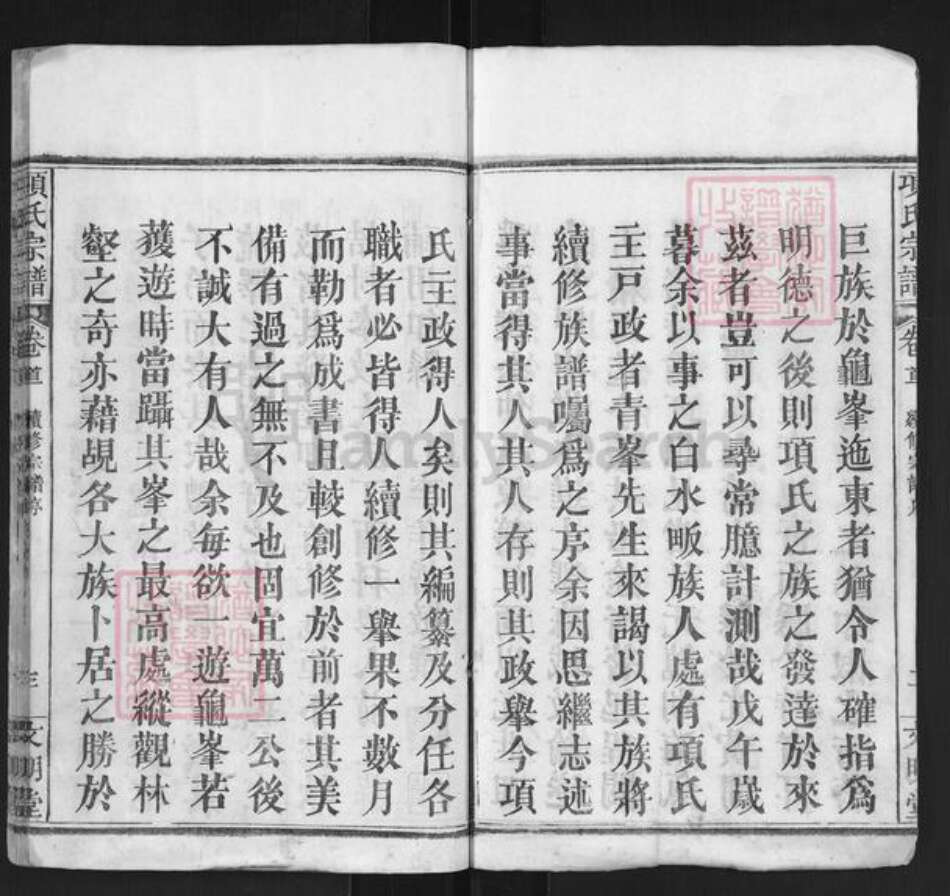 巨族於龜峯迤東者猶令人確指爲
明德之後則項氏之族之發達於來
茲者豈可以尋常臆計測哉戊午歲
暮余以事之白水畈族人處有項氏
主戸政者青峯先生來謁以其族將
續修族譜囑爲之序余因思繼志述
事當得其人其人存則其政舉今項
氏主政得人矣則其編纂及分任各
職者必皆得人續修一舉果不數月
而勒爲成書且較創修於前者其美
備有過之無不及也固宜萬二公後
不誠大有人哉余每欲一遊龜峯若
蒦遊時當躡其峯之最高處縱觀林
壑之奇亦藉覘各大族卜居之勝於
項氏宗譜 卷首 續修宗譜序 三 文明堂
FamilySearch